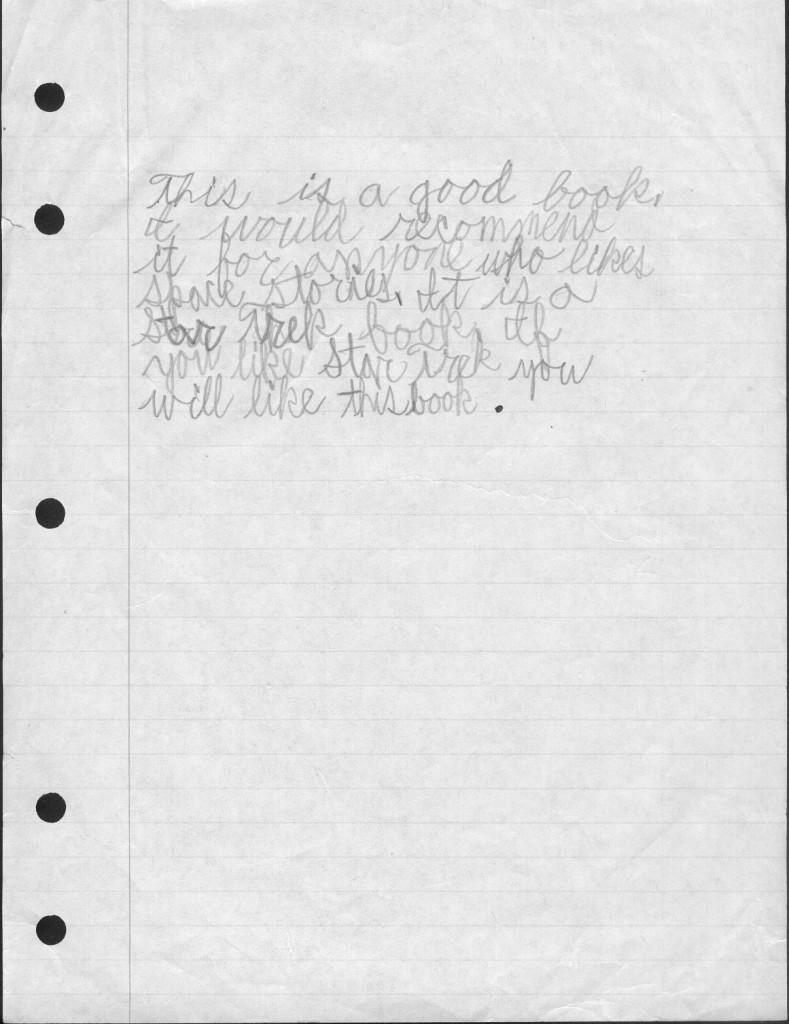 This is a good book.
I would recommend
it for anyone who likes
space stories. It is a
Star Trek book. If
you like Star Trek you
will like this book.